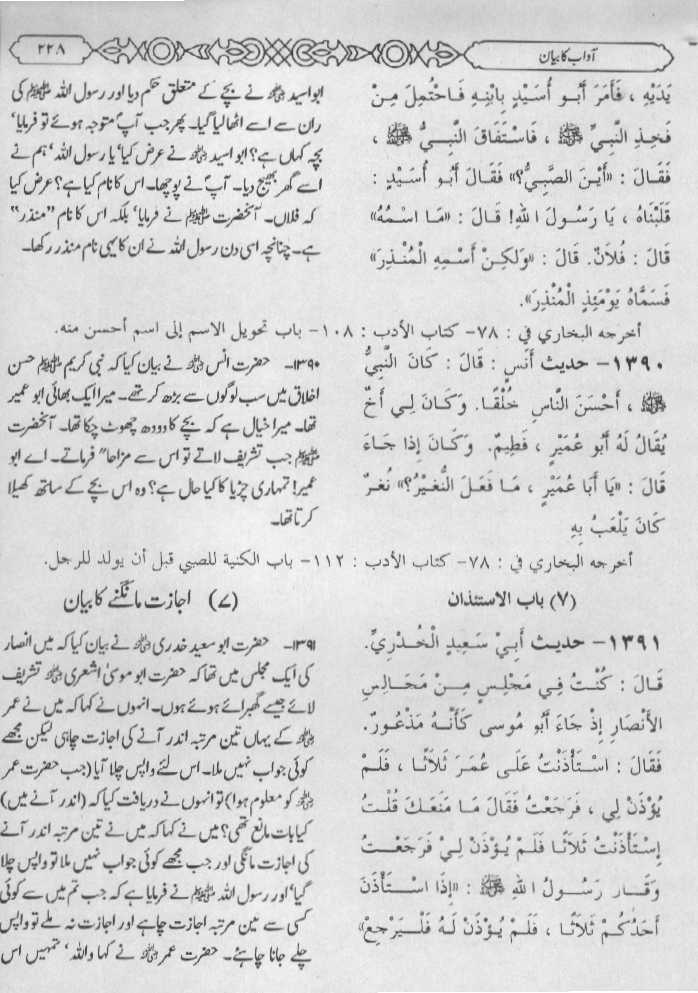 آداب کا بیان
۲۲۸
يَدَيْهِ ، فَأَمَرَ أَبُو أُسَيْدٍ بِابْنِهِ فَاحْتُمِلَ مِنْ
فَخِذِ النَّبِيِّ ﷺ ، فَاسْتَفَاقَ النَّبِيُّ ﷺ ،
فَقَالَ : «أَيْنَ الصَّبِيُّ؟» فَقَالَ أَبُو أُسَيْدٍ :
قَلَبْنَاهُ ، يَا رَسُولَ اللهِ! قَالَ : «مَا اسْمُهُ»
قَالَ : فُلَانٌ. قَالَ : «وَلٰكِنْ أَسْمِهِ الْمُنْذِرَ»
فَسَمَّاهُ يَوْمَئِذٍ الْمُنْذِرَ».
ابو اسید ؓ نے بچے کے متعلق حکم دیا اور رسول اللہ ﷺ کی
ران سے اسے اٹھا لیا گیا۔ پھر جب آپؐ متوجہ ہوئے تو فرمایا‘
بچہ کہاں ہے؟ ابو اسید ؓ نے عرض کیا‘ یا رسول اللہ‘ ہم نے
اسے گھر بھیج دیا۔ آپؐ نے پوچھا۔ اس کا نام کیا ہے؟ عرض کیا
کہ فلاں۔ آنحضرت ﷺ نے فرمایا‘ بلکہ اس کا نام ”منذر“
ہے۔ چنانچہ اسی دن رسول اللہ نے ان کا یہی نام منذر رکھا۔
أخرجه البخاري في : ٧٨- كتاب الأدب : ١٠٨- باب تحويل الاسم إلى اسم أحسن منه.
١٣٩٠- حديث أَنَسٍ : قَالَ : كَانَ النَّبِيُّ
ﷺ ، أَحْسَنَ النَّاسِ خُلُقًا. وَكَانَ لِي أَخٌ
يُقَالُ لَهُ أَبُو عُمَيْرٍ ، فَطِيمٌ. وَكَانَ إِذَا جَاءَ
قَالَ : «يَا أَبَا عُمَيْرٍ ، مَا فَعَلَ النُّغَيْرُ؟» نُغَرٌ
كَانَ يَلْعَبُ بِهِ
۱۳۹۰- حضرت انس ؓ نے بیان کیا کہ نبی کریم ﷺ حسن
اخلاق میں سب لوگوں سے بڑھ کر تھے۔ میرا ایک بھائی ابو عمیر
تھا۔ میرا خیال ہے کہ بچے کا دودھ چھوٹ چکا تھا۔ آنحضرت
ﷺ جب تشریف لاتے تو اس سے مزاحاً فرماتے۔ اے ابو
عمیر! تمہاری چڑیا کا کیا حال ہے؟ وہ اس بچے کے ساتھ کھیلا
کرتا تھا۔
أخرجه البخاري في : ٧٨- كتاب الأدب : ١١٢- باب الكنية للصبي قبل أن يولد للرجل.
(٧) باب الاستئذان
(۷) اجازت مانگنے کا بیان
١٣٩١- حديث أَبِيْ سَعِيدٍ الْخُدْرِيِّ.
قَالَ : كُنْتُ فِي مَجْلِسٍ مِنْ مَجَالِسِ
الأَنْصَارِ إِذْ جَاءَ أَبُو مُوسى كَأَنَّهُ مَذْعُورٌ.
فَقَالَ : اسْتَأْذَنْتُ عَلَى عُمَرَ ثَلَاثًا ، فَلَمْ
يُؤْذَنْ لِي ، فَرَجَعْتُ فَقَالَ مَا مَنَعَكَ قُلْتُ
إِسْتَأْذَنْتُ ثَلَاثًا فَلَمْ يُؤْذَنْ لِيْ فَرَجَعْتُ
وَقَـار رَسُولُ اللهِ ﷺ : «إِذَا اسْتَأْذَنَ
أَحَدُكُمْ ثَلَاثًا ، فَلَمْ يُؤْذَنْ لَهُ فَلْيَرْجِعْ»
۱۳۹۱- حضرت ابو سعید خدری ؓ نے بیان کیا کہ میں انصار
کی ایک مجلس میں تھا کہ حضرت ابو موسیٰ اشعری ؓ تشریف
لائے جیسے گھبرائے ہوئے ہوں۔ انہوں نے کہا کہ میں نے عمر
ؓ کے یہاں تین مرتبہ اندر آنے کی اجازت چاہی لیکن مجھے
کوئی جواب نہیں ملا۔ اس لئے واپس چلا آیا (جب حضرت عمر
ؓ کو معلوم ہوا) تو انہوں نے دریافت کیا کہ (اندر آنے میں)
کیا بات مانع تھی؟ میں نے کہا کہ میں نے تین مرتبہ اندر آنے
کی اجازت مانگی اور جب مجھے کوئی جواب نہیں ملا تو واپس چلا
گیا‘ اور رسول اللہ ﷺ نے فرمایا ہے کہ جب تم میں سے کوئی
کسی سے تین مرتبہ اجازت چاہے اور اجازت نہ ملے تو واپس
چلے جانا چاہئے۔ حضرت عمر ؓ نے کہا واللہ‘ تمہیں اس